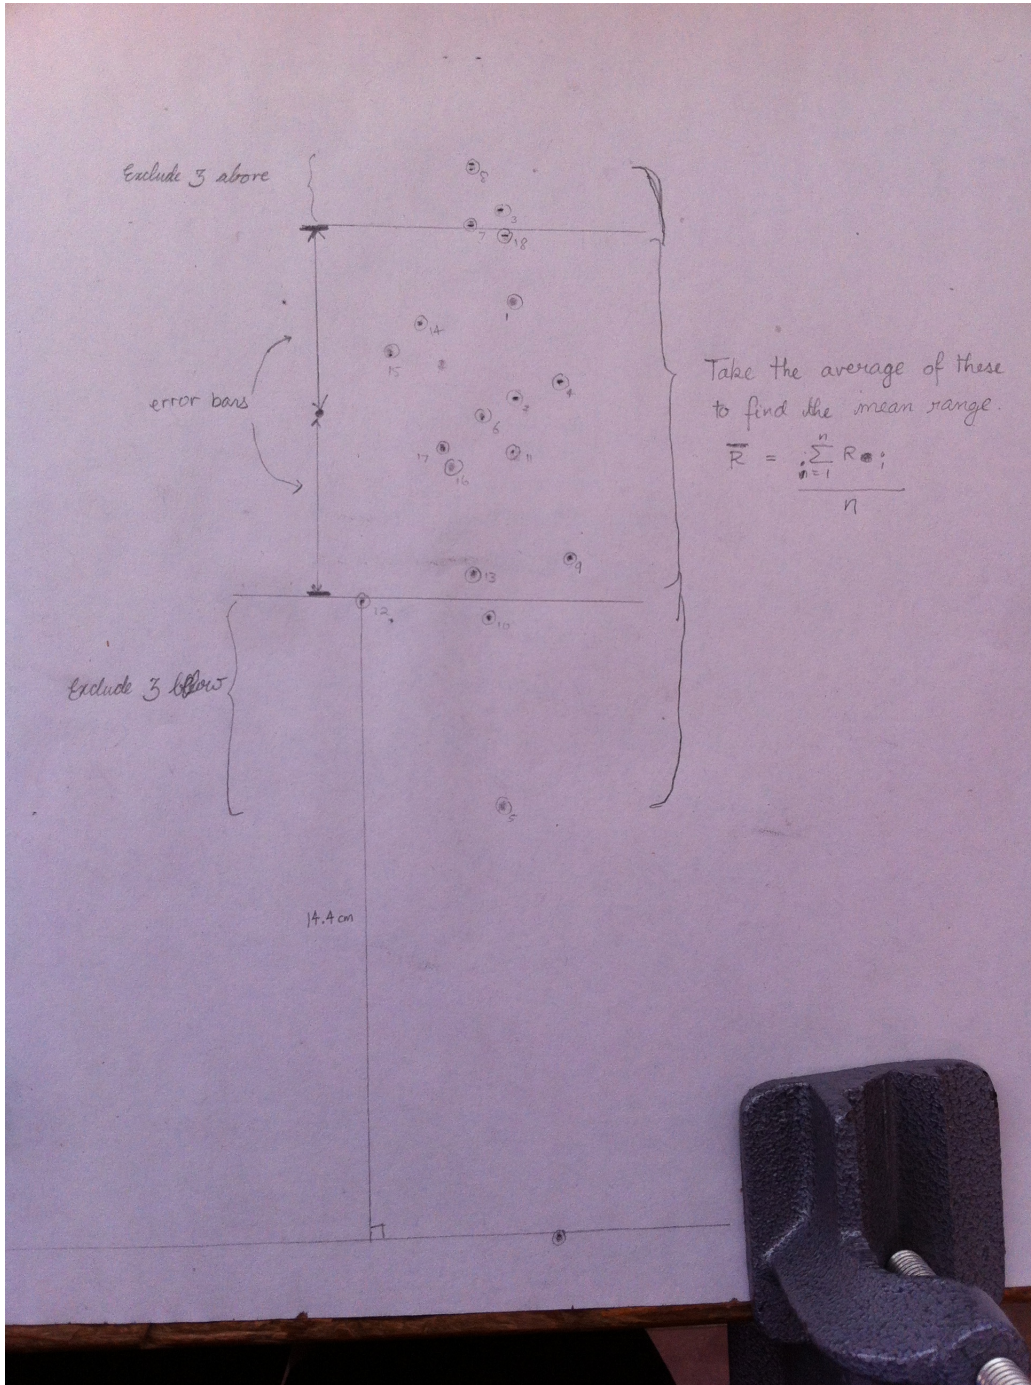 Exclude 3 above
8
3
7
18
1
14
15
8
4
2
6
17
11
16
error bars
Take the average of these
to find the mean range.
R̅ = n Σ n=1 R i
n
9
13
12
10
Exclude 3 below
5
14.4 cm